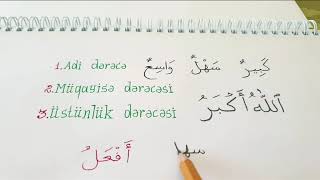 1. Adi dərəcə كَبِيرٌ سَهْلٌ وَاسِعٌ
2. Müqayisə dərəcəsi
3. Üstünlük dərəcəsi اَللّٰهُ أَكْبَرُ
أَفْعَلُ سهل